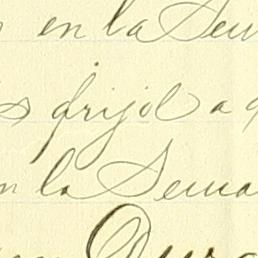 en la Sem
s frijol a
n la Sema
Dura